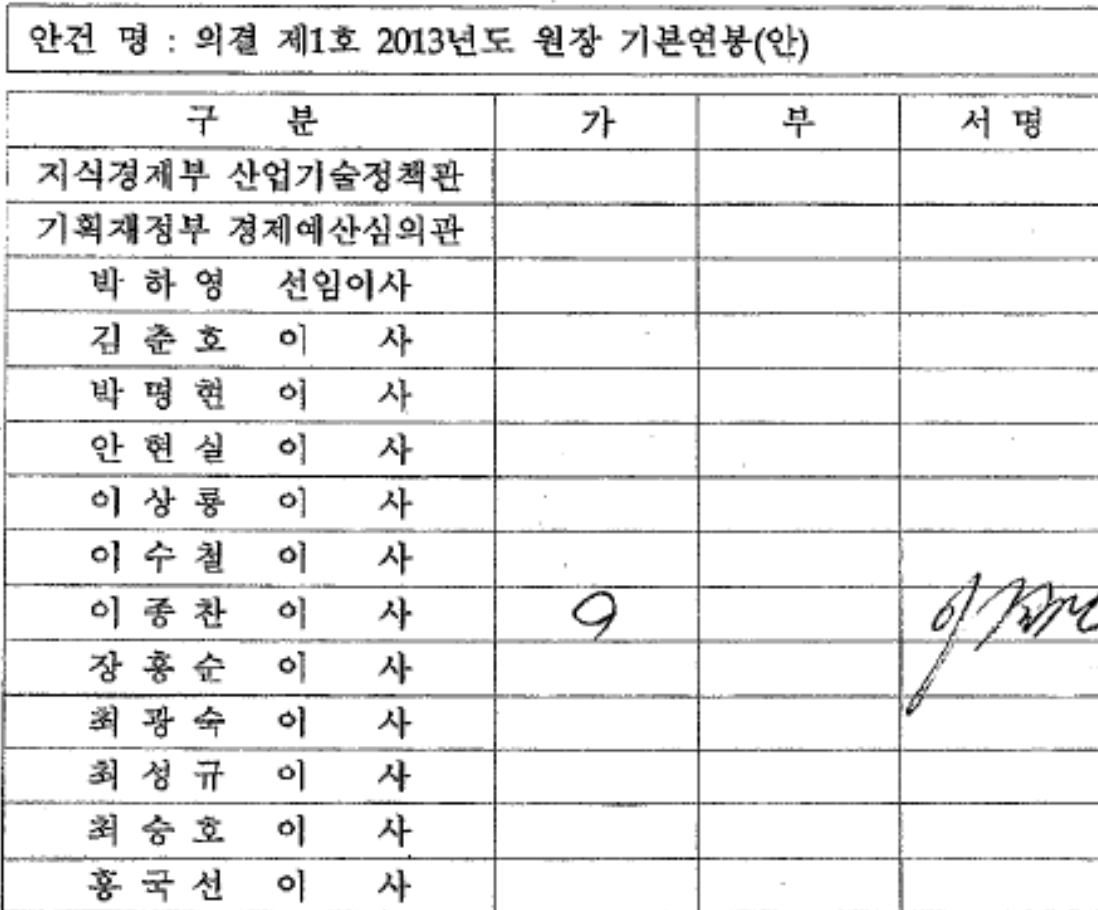 안건 명 : 의결 제1호 2013년도 원장 기본연봉(안)
구 분 가 부 서 명
지식경제부 산업기술정책관
기획재정부 경제예산심의관
박 하 영 선임이사
김 춘 호 이 사
박 명 현 이 사
안 현 실 이 사
이 상 룡 이 사
이 수 철 이 사
이 종 찬 이 사
장 흥 순 이 사
최 광 숙 이 사
최 성 규 이 사
최 승 호 이 사
홍 국 선 이 사